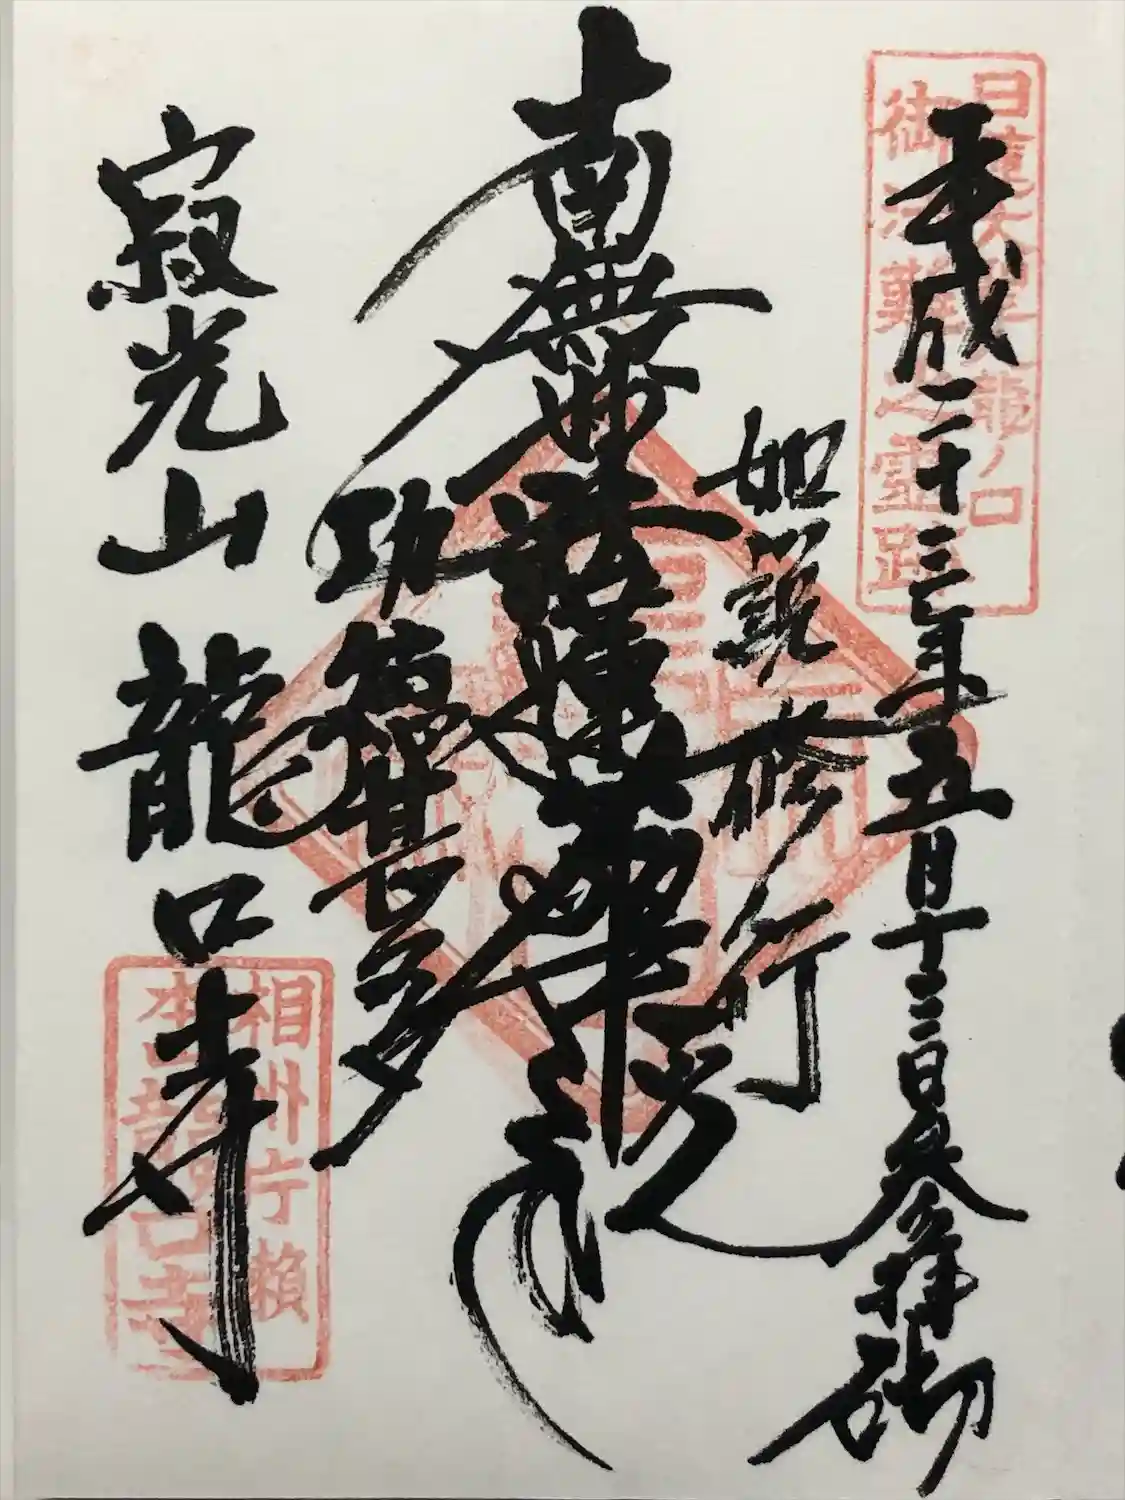 日蓮大聖人龍ノ口
御法難之霊跡
平成二十三年五月十二日参拝
如説修行
南無妙法蓮華経
功徳甚多
寂光山龍口寺
相州片瀬
本山龍口寺